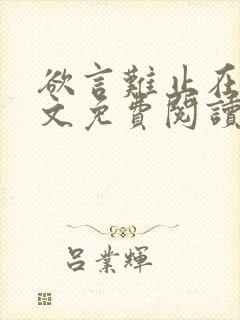 欲言難止在
文免費閱讀
呂業輝